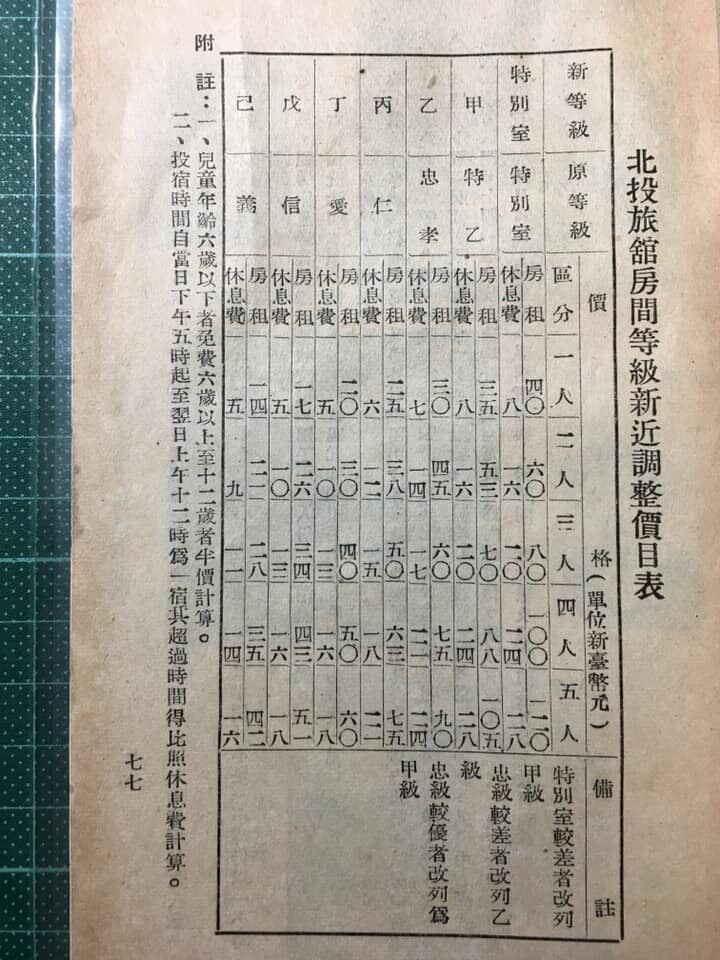 北投旅舘房間等級新近調整價目表
新等級 原等級 價格(單位新臺幣元) 備註
區分 一人 二人 三人 四人 五人
特別室 特別室 房租 四〇 六〇 八〇 一〇〇 一二〇
休息費 八 一六 二〇 二四 二八
甲 特乙 房租 三五 五三 七〇 八八 一〇五
休息費 八 一六 二〇 二四 二八
乙 忠孝 房租 三〇 四五 六〇 七五 九〇
休息費 七 一四 一七 二一 二四
丙 仁 房租 二五 三八 五〇 六三 七五
休息費 六 一二 一五 一八 二一
丁 愛 房租 二〇 三〇 四〇 五〇 六〇
休息費 五 一〇 一三 一六 一八
戊 信 房租 一七 二六 三四 四三 五一
休息費 五 一〇 一三 一六 一八
己 義 房租 一四 二一 二八 三五 四二
休息費 五 九 一一 一四 一六
特別室較差者改列
甲級
忠級較差者改列乙
級
忠級較優者改列爲
甲級
附註：一、兒童年齡六歲以下者免費六歲以上至十二歲者半價計算。
二、投宿時間自當日下午五時起至翌日上午十二時爲一宿其超過時間得比照休息費計算。
七七